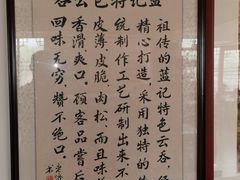 蓝记特色云吞
祖传的蓝记特色云吞,经
精心打造,采用独特的
统制作工艺研制出来不
皮薄皮脆,肉松而且味
香滑爽口。顾客品尝后
回味无穷,赞不绝口。